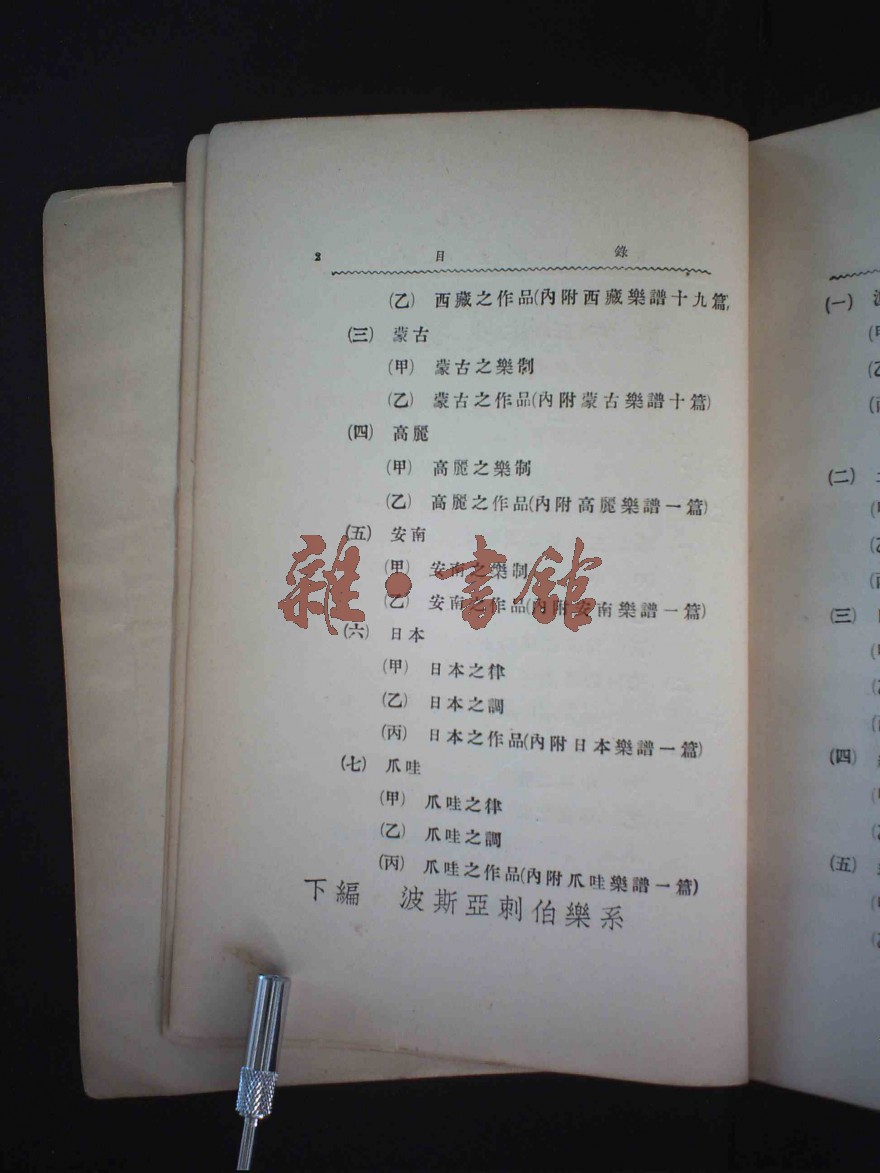 2 目 錄
(乙) 西藏之作品(內附西藏樂譜十九篇)
(三) 蒙古
(甲) 蒙古之樂制
(乙) 蒙古之作品(內附蒙古樂譜十篇)
(四) 高麗
(甲) 高麗之樂制
(乙) 高麗之作品(內附高麗樂譜一篇)
(五) 安南
(甲) 安南之樂制
(乙) 安南之作品(內附安南樂譜一篇)
(六) 日本
(甲) 日本之律
(乙) 日本之調
(丙) 日本之作品(內附日本樂譜一篇)
(七) 爪哇
(甲) 爪哇之律
(乙) 爪哇之調
(丙) 爪哇之作品(內附爪哇樂譜一篇)
下編 波斯亞刺伯樂系
雜·書館
(一)
(二)
(三)
(四)
(五)